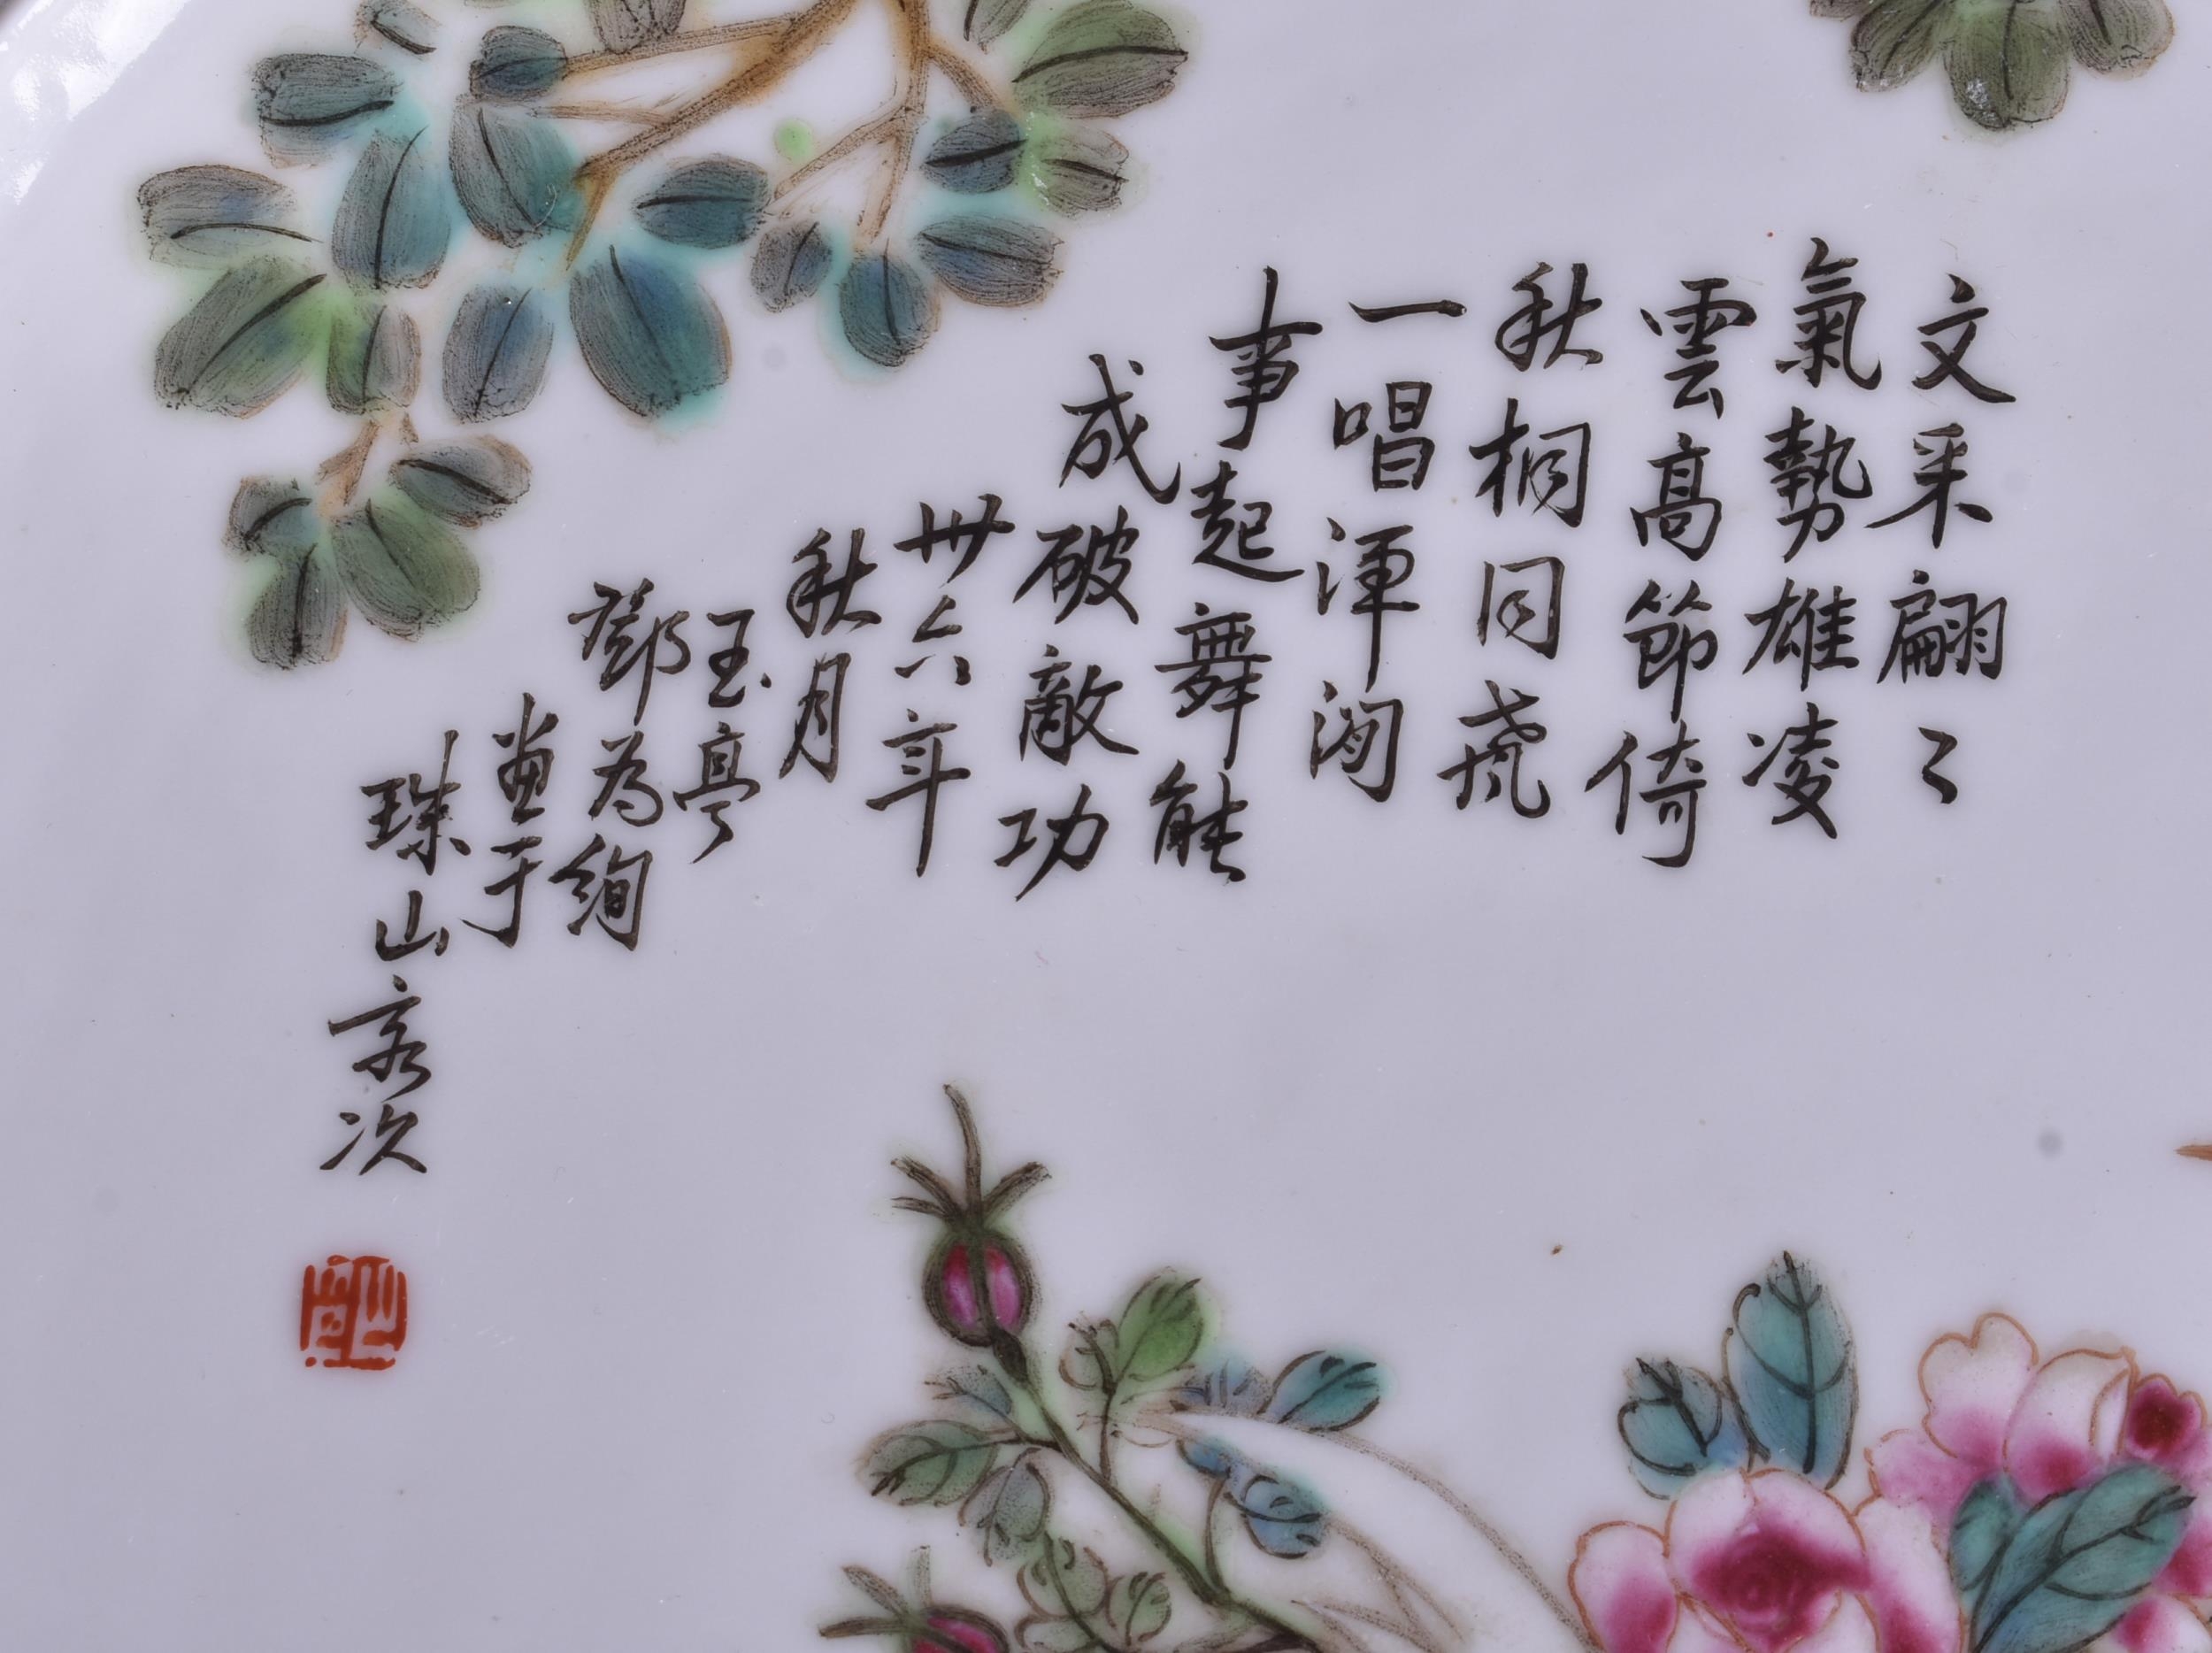 文采翩〻
氣勢雄凌
雲高節倚
秋桐同飛
一唱渾閒
事起舞能
成破敵功
卅六年
秋月
玉亭
鄧為絢
畫于
珠山客次